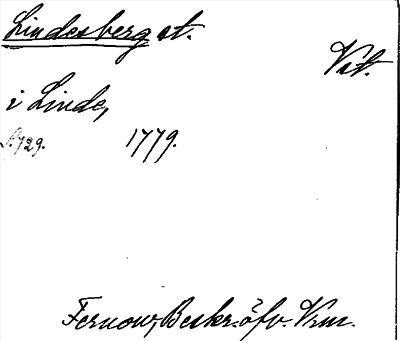 Lindesberg st.
Vstm.
i Linde,
S. 729. 1779.
Fernow, Beskr. öfv. Vrm.